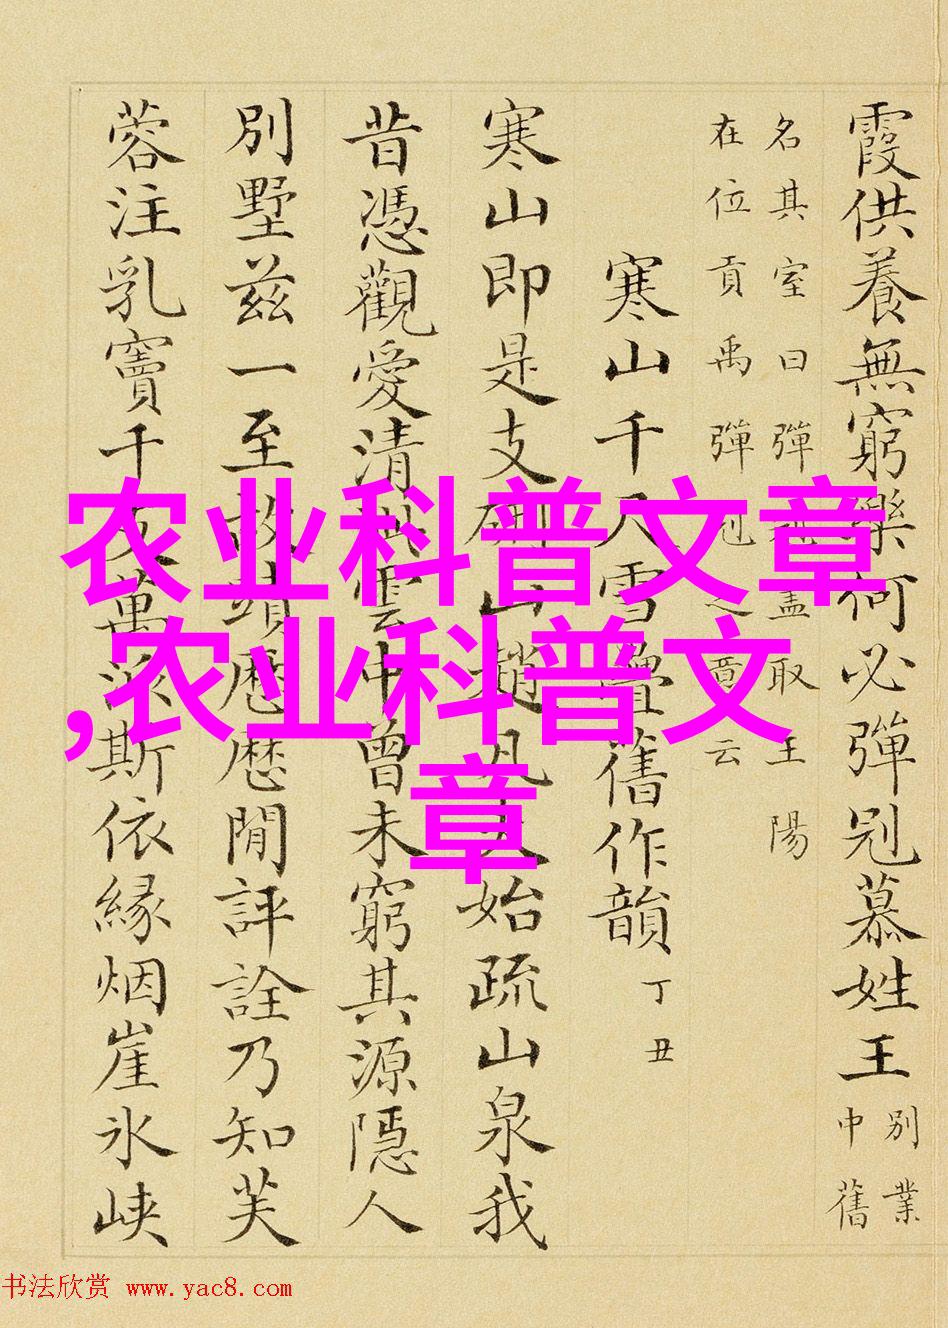 霞供養無窮樂何必彈冠慕姓王
別業
中舊
名其室曰彈蓋取王陽
在位貢禹彈冠之意云
寒山千尺雪疊舊作韻
丁丑
寒山即是支硎山趙凡夫始疏山泉我
昔憑觀愛清雲中曾未窮其源隱人
別墅兹一至故蹟歷歷閒評詮乃知芙
蓉注乳竇千支萬派斯依緣烟崖氷峡
农业科普文章
,农业科普文
章
书法欣赏 www.yac8.com